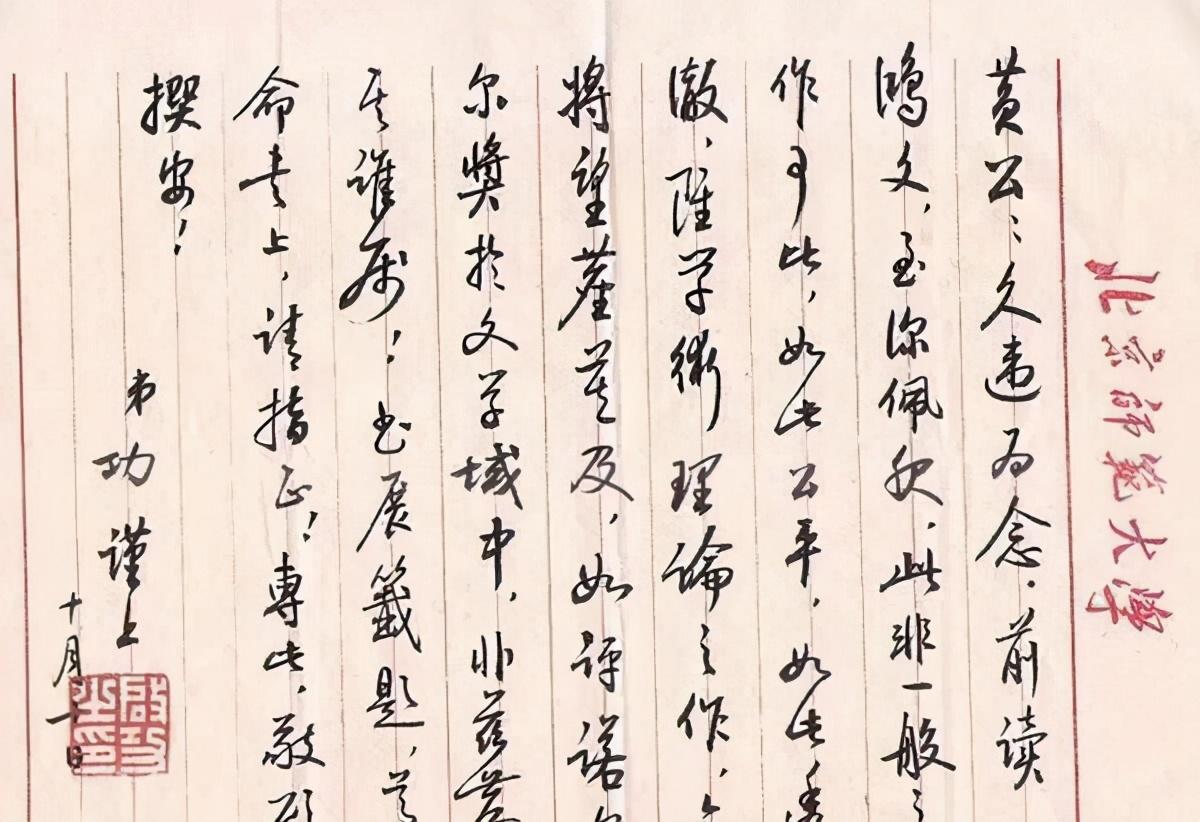 北京師範大學
黄公：久违为念．前读
鴻文，至深佩服．此非一般之
作可比，如此公平，如此透
澈，雖学術理論之作，
將望塵莫及，如評诺
尔奬於文学域中，非兹
其谁属！书展籤题，
命书上，请指正！專此，敬
撰安！
弟功謹上
十月一日
啟功之印